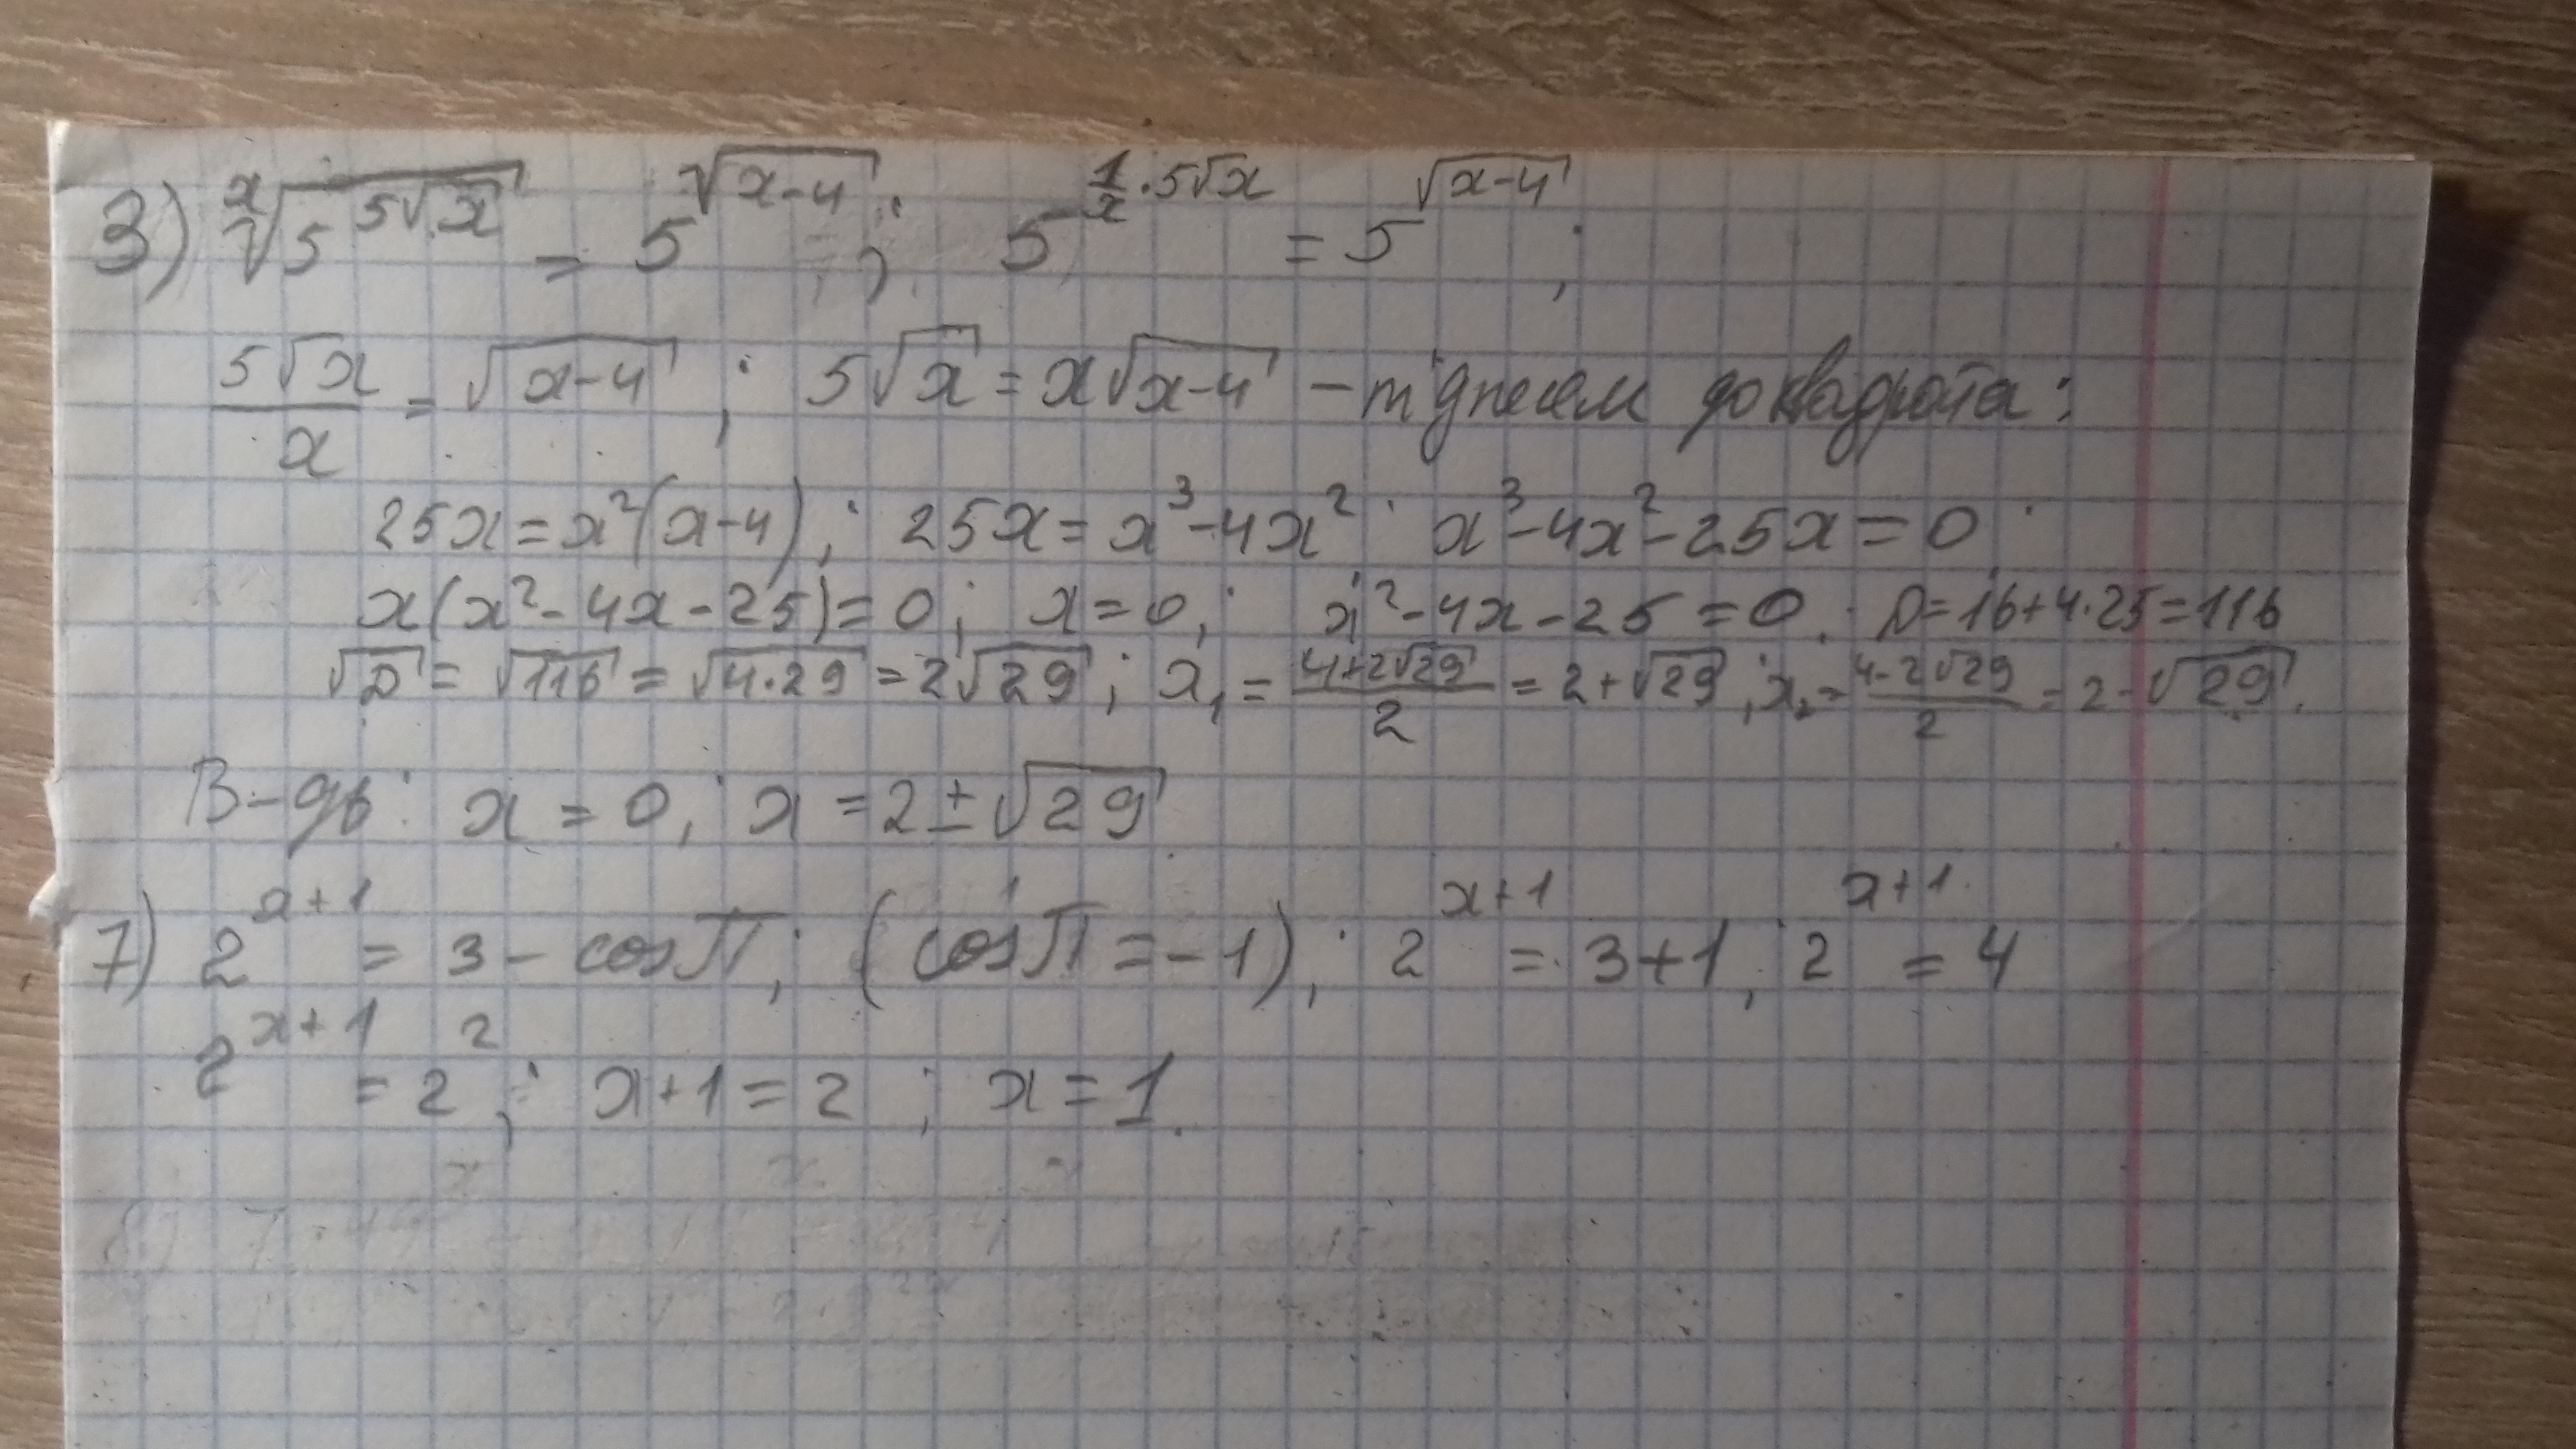 3) ˣ√(5^(5√x)) = 5^(√(x-4)); 5^(1/x·5√x) = 5^(√(x-4));
5√x/x = √(x-4); 5√x = x√(x-4) – піднесем до квадрата:
25x = x²(x-4); 25x = x³-4x²; x³-4x²-25x = 0;
x(x²-4x-25) = 0; x=0; x²-4x-25 = 0; D=16+4·25=116
√D = √116 = √(4·29) = 2√29; x₁ = (4+2√29)/2 = 2+√29; x₂ = (4-2√29)/2 = 2-√29.
В-дь: x = 0; x = 2±√29
7) 2^(x+1) = 3 - cosπ; (cosπ = -1); 2^(x+1) = 3+1; 2^(x+1) = 4
2^(x+1) = 2²; x+1 = 2; x = 1.